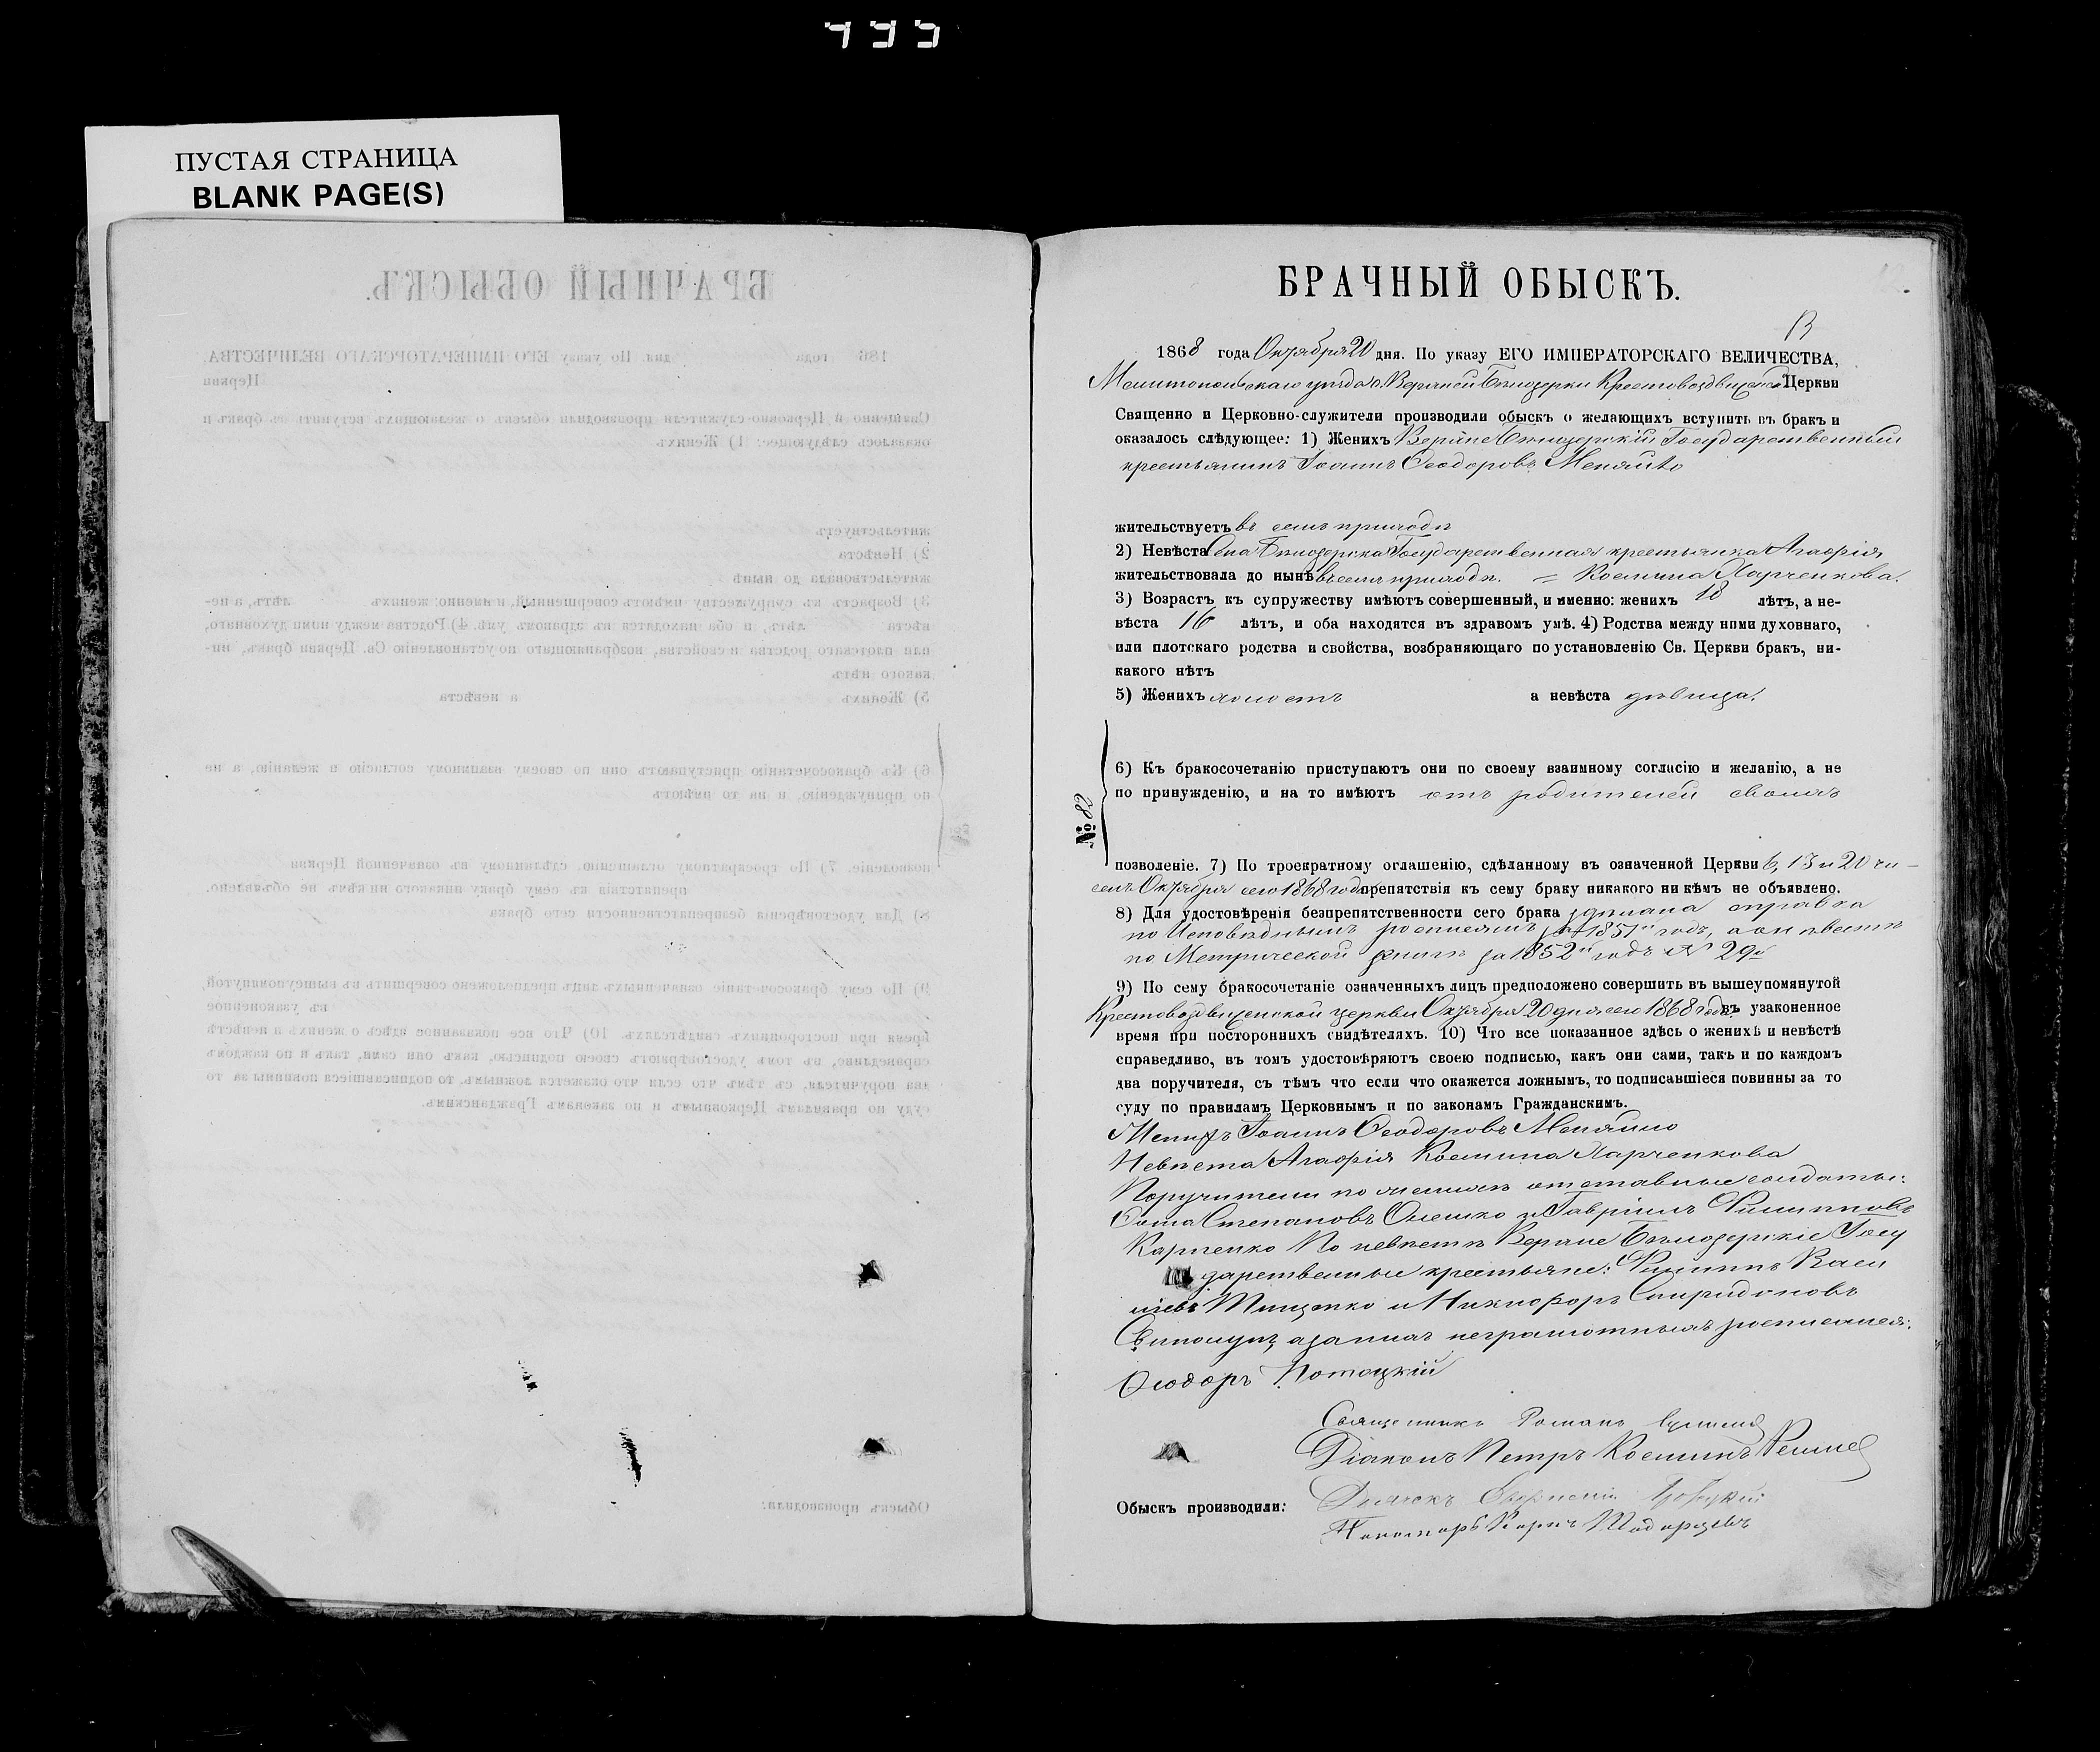 ПУСТАЯ СТРАНИЦА
BLANK PAGE(S)
БРАЧНЫЙ ОБЫСКЪ.
1868 года Октября 20 дня. По указу ЕГО ИМПЕРАТОРСКАГО ВЕЛИЧЕСТВА,
Мелитопольскаго уѣзда с. Верхней Бѣлозерки Крестовоздвиженской Церкви
Священно и Церковно-служители производили обыскъ о желающихъ вступить въ бракъ и
оказалось слѣдующее: 1) Женихъ Верхне Бѣлозерскій Государственный
крестьянинъ Іоаннъ Ѳеодоровъ Меняйло
жительствуетъ въ семъ приходѣ
2) Невѣста Села Бѣлозерска Государственная крестьянка Агафія
жительствовала до нынѣ въ семъ приходѣ. = Космина Харченкова.
3) Возрастъ къ супружеству имѣютъ совершенный, и именно: женихъ 18 лѣтъ, а не-
вѣста 16 лѣтъ, и оба находятся въ здравомъ умѣ. 4) Родства между ними духовнаго,
или плотскаго родства и свойства, возбраняющаго по установленію Св. Церкви бракъ, ни-
какого нѣтъ
5) Женихъ холостъ а невѣста дѣвица.
6) Къ бракосочетанію приступаютъ они по своему взаимному согласію и желанію, а не
по принужденію, и на то имѣютъ отъ родителей своихъ
№ 82
позволеніе. 7) По троекратному оглашенію, сдѣланному въ означенной Церкви 6, 13 и 20 чи-
селъ Октября сего 1868 года препятствія къ сему браку никакого ни кѣмъ не объявлено.
8) Для удостовѣренія безпрепятственности сего брака сдѣлана справка
по Исповѣднымъ росписямъ за 1851й годъ, а о невѣстѣ
по Метрической книгѣ за 1852й годъ № 29й
9) По сему бракосочетаніе означенныхъ лицъ предположено совершить въ вышеупомянутой
Крестовоздвиженской церкви Октября 20 дня сего 1868 года въ узаконенное
время при постороннихъ свидѣтеляхъ. 10) Что все показанное здѣсь о женихѣ и невѣстѣ
справедливо, въ томъ удостовѣряютъ своею подписью, какъ они сами, такъ и по каждомъ
два поручителя, съ тѣмъ что если что окажется ложнымъ, то подписавшіеся повинны за то
суду по правиламъ Церковнымъ и по законамъ Гражданскимъ.
Женихъ Іоаннъ Ѳеодоровъ Меняйло
Невѣста Агафія Космина Харченкова
Поручители по женихѣ отставные солдаты:
Ѳома Степановъ Олешко и Гавріилъ Филипповъ
Карпенко По невѣстѣ Верхне Бѣлозерскіе Госу
дарственные крестьяне: Филиппъ Васи
ліевъ Тищенко и Никифоръ Спиридоновъ
а за нихъ неграмотныхъ росписался:
Ѳеодоръ Потоцкій
Священникъ Романъ
Діаконъ Петръ Косминъ
Обыскъ производили: Дьячокъ
Пономарь